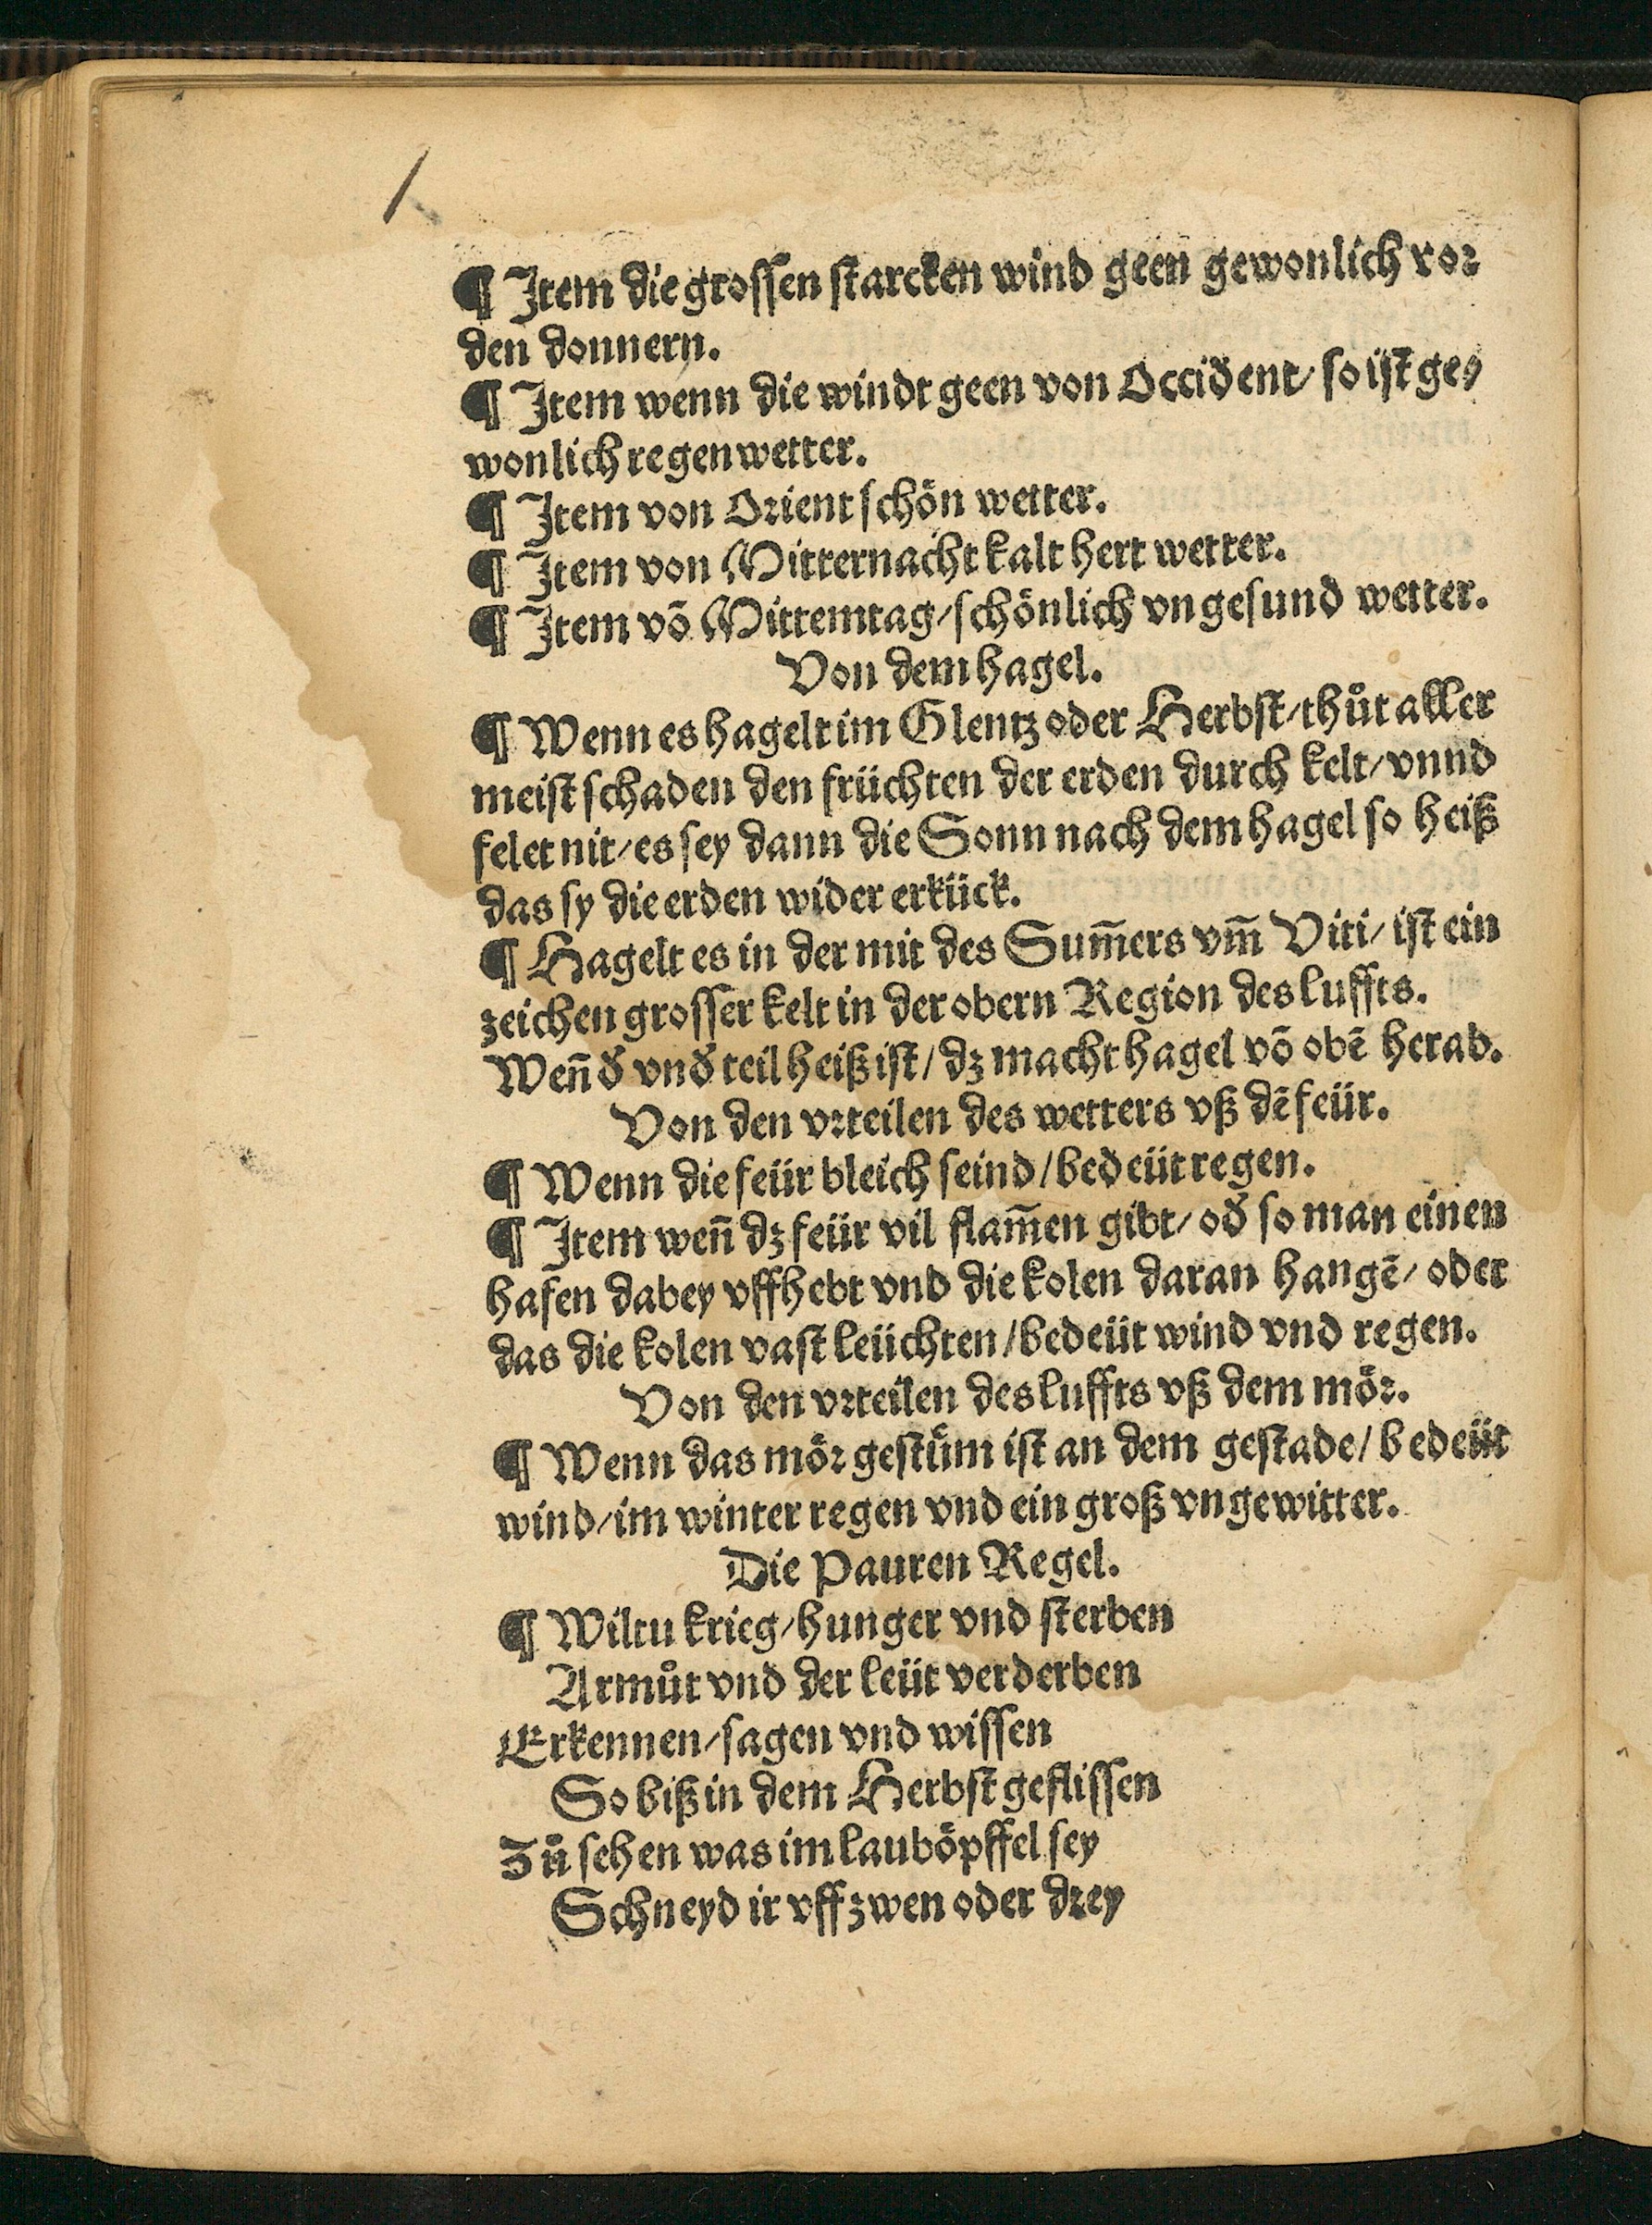 ¶ Item die grossen starcken wind geen gewonlich vor
den donnern.
¶ Item wenn die windt geen von Occident / so ist ge⸗
wonlich regenwetter.
¶ Item von Orient schön wetter.
¶ Item von Mitternacht kalt hert wetter.
¶ Item võ Mittemtag / schönlich vngesund wetter.
Von dem hagel.
¶ Wenn es hagelt im Glentz oder Herbst / thůt aller
meist schaden den früchten der erden durch kelt / vnnd
felet nit / es sey dann die Sonn nach dem hagel so heiß
das sy die erden wider erkück.
¶ Hagelt es in der mit des Sum̃ers vm̃ Viti / ist ein
zeichen grosser kelt in der obern Region des luffts.
Wen̄ d̕ vnd̕ teil heiß ist / dz macht hagel võ obē herab.
Von den vrteilen des wetters vß dē feür.
¶ Wenn die feür bleich seind / bedeüt regen.
¶ Item wen̄ dz feür vil flam̃en gibt / od̕ so man einen
hafen dabey vffhebt vnd die kolen daran hangē / oder
das die kolen vast leüchten / bedeüt wind vnd regen.
Von den vrteilen des luffts vß dem mör.
¶ Wenn das mör gestüm ist an dem gestade / bedeüt
wind / im winter regen vnd ein groß vngewitter.
Die Pauren Regel.
¶ Wiltu krieg / hunger vnd sterben
Armůt vnd der leüt verderben
Erkennen / sagen vnd wissen
So biß in dem Herbst geflissen
Zů sehen was im lauböpffel sey
Schneyd ir vff zwen oder drey